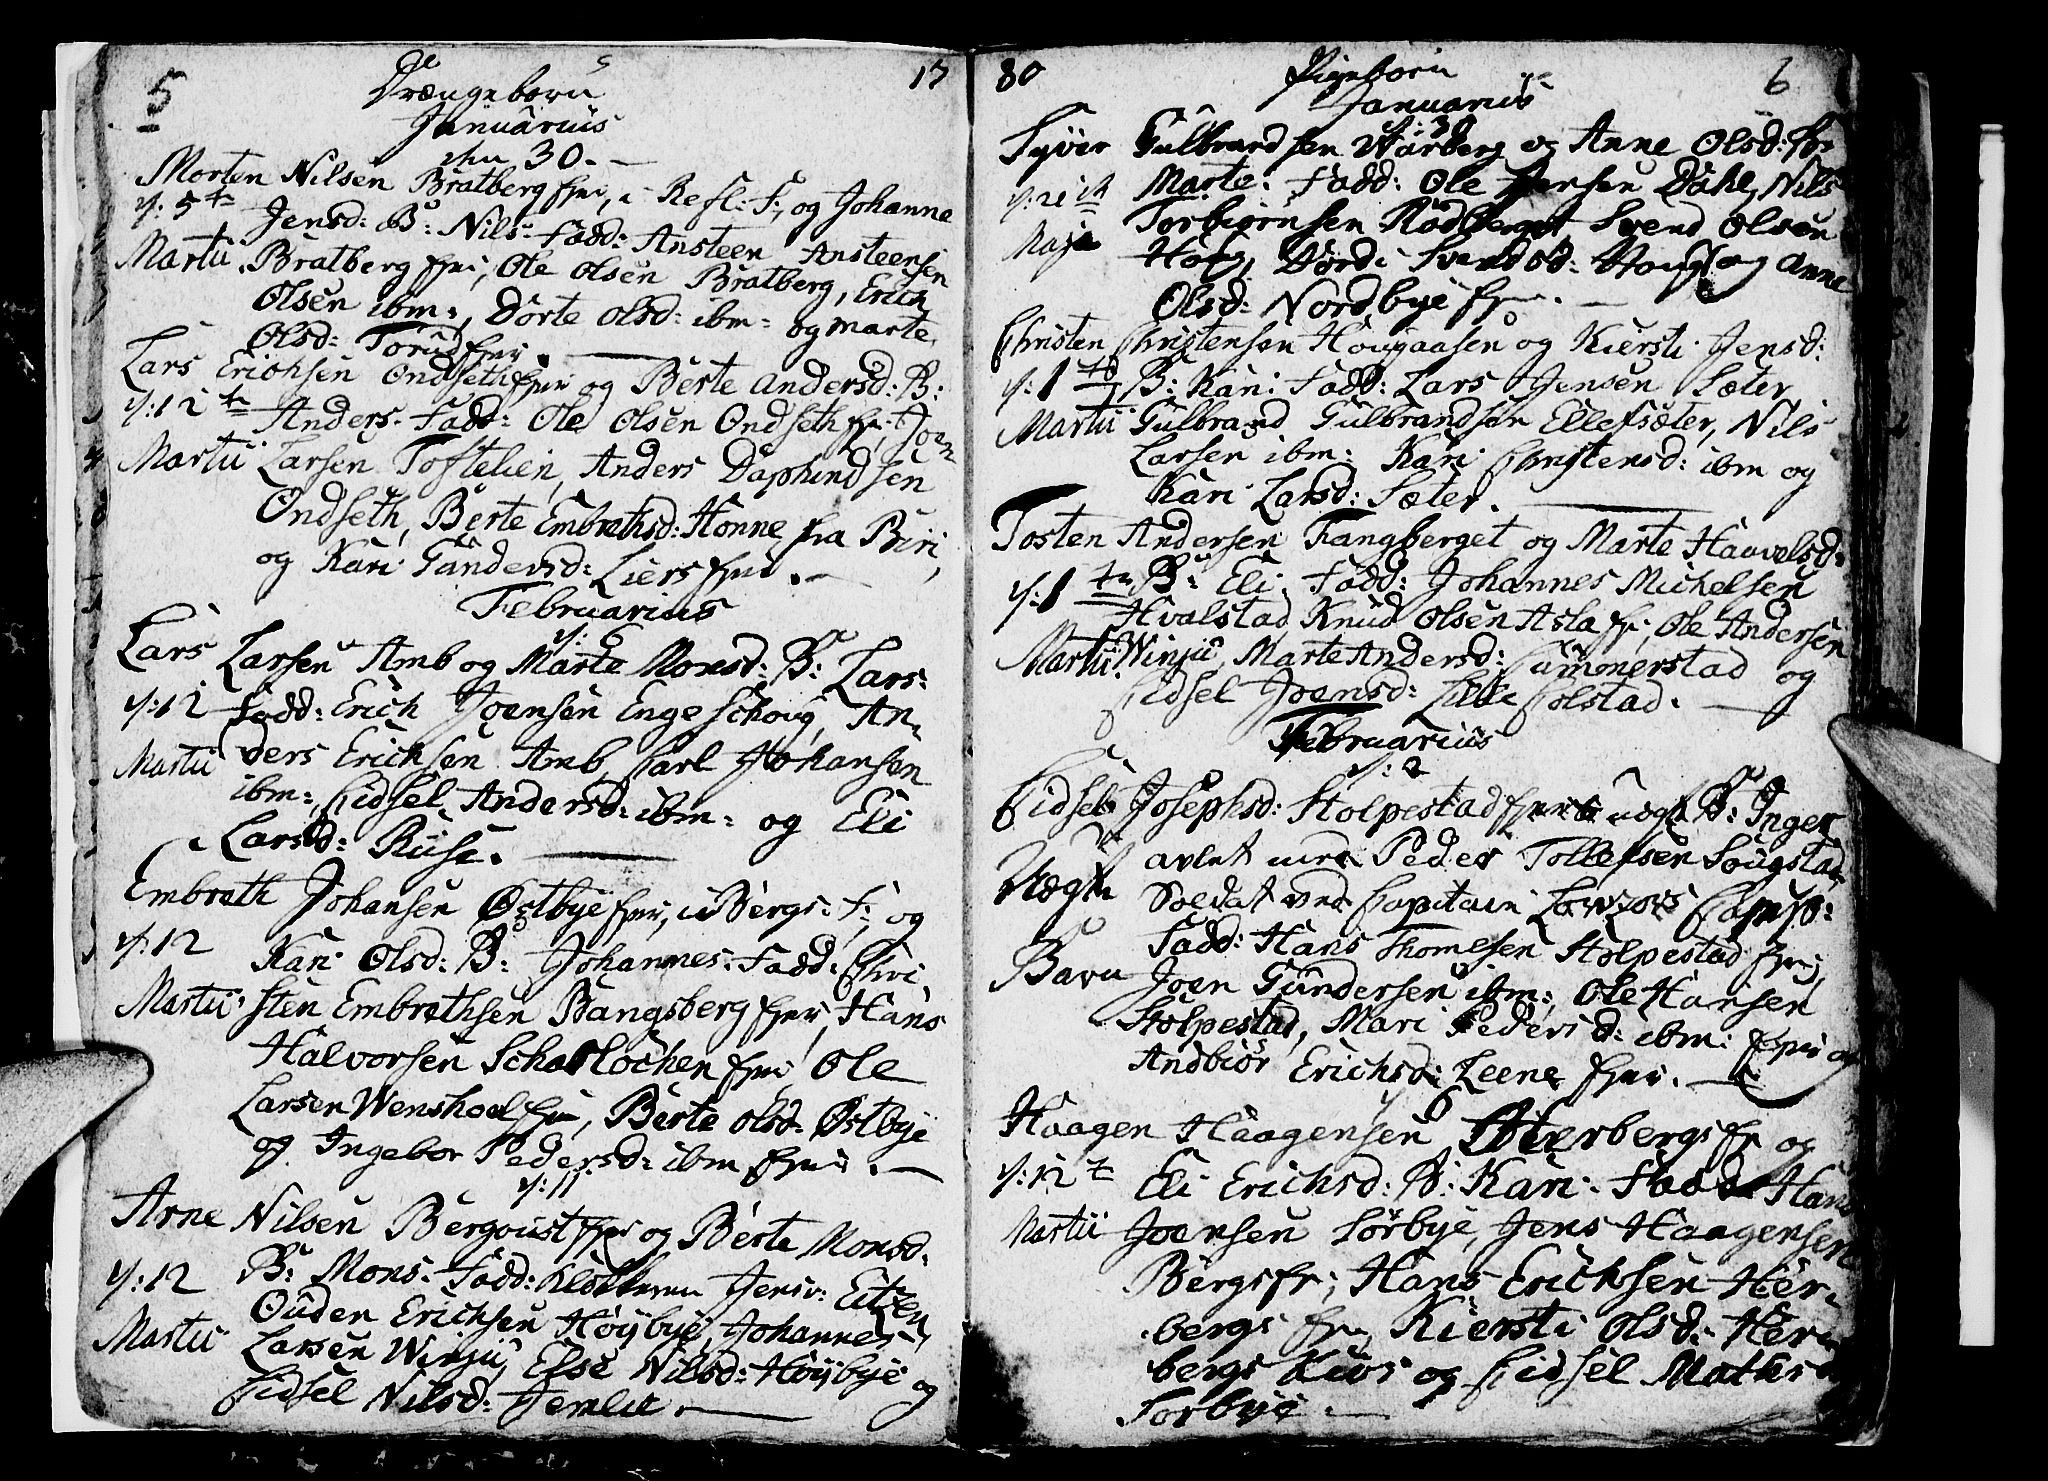 5
17
Drængebørn
Januarius
den 30.
Morten Nilsen Bratberg Ejer, i Refl: F:, og Johanne
d: 5te Jensd: B: Nils. Fadd: Ansteen Ansteensen
Martii Bratberg Ejer, Ole Olsen Bratberg, Erich
Olsen ibm:, Dorte Olsd: ibm: og Marte
Olsd: Torud Ejer.
Lars Erichsen Ondseth Ejer og Berte Andersd: B:
d: 12te Anders. Fadd: Ole Olsen Ondseth Ejer, Joen
Martii Larsen Toftelien, Anders Daphindsen
Ondseth, Berte Embrethsd: Honne fra Biri,
og Kari Gundersd: Liers Ejer.
Februarius
d: 6
Lars Larsen Amb og Marte Monsd: B: Lars:
d: 12 Fadd: Erich Joensen Engeschoug, An-
Martii ders Erichsen Amb, Carl Johansen
ibm:, Eidsel Andersd: ibm: og Eli
Larsd: Ruse.
Embreth Johansen Østbye Ejer, i Bergs: F:, og
d: 12 Kari Olsd: B: Johannes. Fadd: Chri-
Martii sten Embrethsen Bangsberg Ejer, Hans
Halvorsen Scharlochen Ejer, Ole
Larsen Wenshoel Ejer, Berte Olsd: Østbye
og Ingebor Pedersd: ibm Ejer.
d: 11
Arne Nilsen Bergoust Ejer og Berte Monsd.
d: 12 B: Mons. Fadd: Klokkeren Jens v: Eitzen,
Martii Ouden Erichsen Høybye, Johannes
Larsen Winju, Else Nilsd: Høybye og
Eidsel Nilsd: Jemlie.
80
6
Pigebørn
Januarius
d: 30
Syver Gulbrandsen Warberg og Anne Olsd: B:
Marte: Fadd: Ole Jensen Dahl, Nils
Maji Torbiørnsen Rødberget, Svend Olsen
Houg, Dordi Svendsd: Houg og Anne
Olsd: Nordbye Ejer.
Christen Christensen Hougaasen og Kiersti Jensd:
d: 1te B: Kari. Fadd: Lars Jensen Sæter
Martii Gulbrand Gulbrandsen Ellefsæter, Nils
Larsen ibm: Kari Christensd: ibm og
Kari Larsd: Sæter.
Tosten Andersen Fangberget og Marte Haavelsd:
d: 1te B: Eli. Fadd: Johannes Michelsen
Hvalstad Knud Olsen Asla Ejer, Ole Andersen
Martii Winju, Marte Andersd: Cammerstad og
Eidsel Joensd: Lille Colstad.
Februarius
d: 2
Eidsel Josephsd: Stolpestad Ejer uægt B: Inger
avlet med Peder Tollefsen Sougstad,
Uægte Soldat ved Capitain Comp:
Barn Fadd: Hans Thomesen Stolpestad Ejer,
Joen Gundersen ibm:, Ole Hansen
Stolpestad, Mari Pedersd: ibm: Ejer og
Andbiør Erichsd: Leene Ejer.
d: 6
Haagen Haagensen Herbergs Ejer og
d: 12te Eli Erichsd: B: Kari. Fadd: Hans
Martii Joensen Sørbye, Jens Haagensen
Bergs Ejer, Hans Erichsen Her-
bergs Ejer, Kiersti Olsd: Her-
bergs og Eidsel Mathisd
Sorbye.